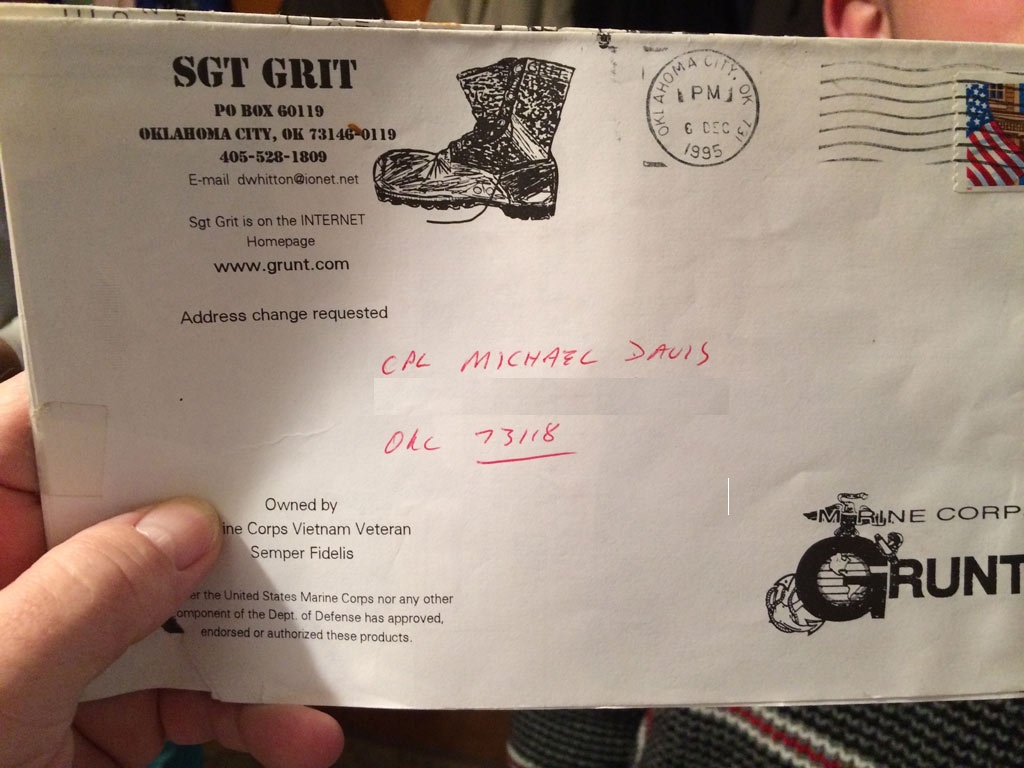 SGT GRIT
PO BOX 60119
OKLAHOMA CITY, OK 73146-0119
405-528-1809
E-mail dwhitton@ionet.net
Sgt Grit is on the INTERNET
Homepage
www.grunt.com
Address change requested
OKLAHOMA CITY, OK 731
PM
6 DEC
1995
CPL MICHAEL DAVIS
OKC 73118
Owned by
ine Corps Vietnam Veteran
Semper Fidelis
er the United States Marine Corps nor any other
omponent of the Dept. of Defense has approved,
endorsed or authorized these products.
MARINE CORP
GRUNT